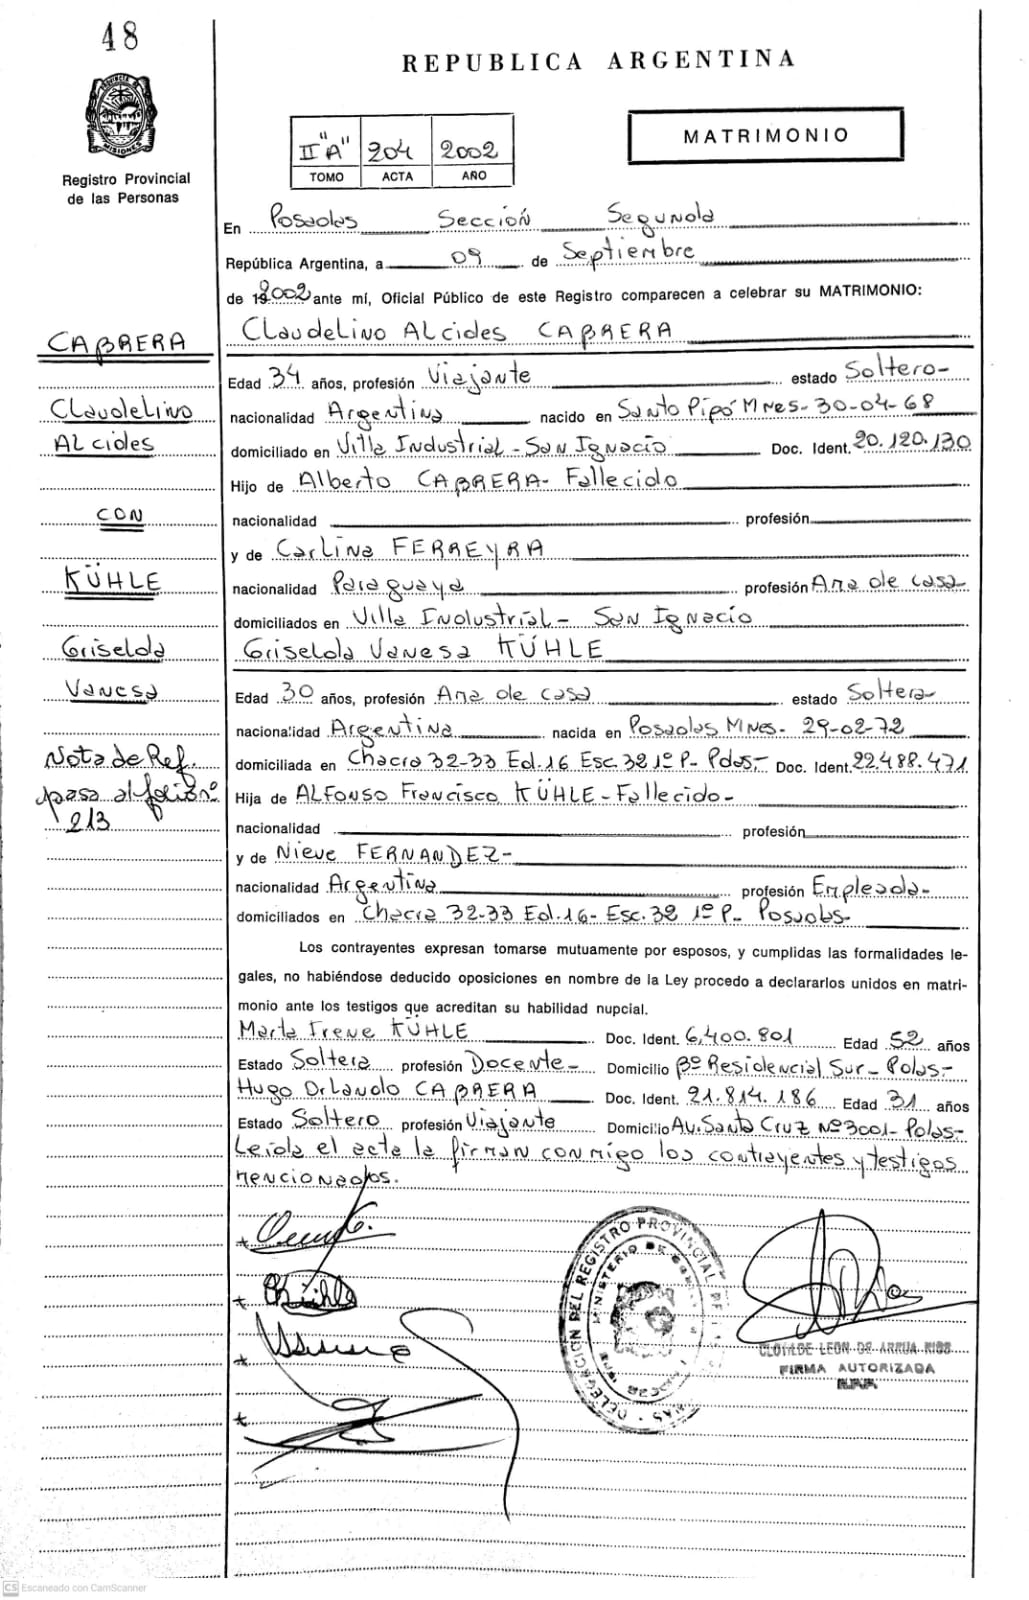 48
REPUBLICA ARGENTINA
PROVINCIA DE
MISIONES
Registro Provincial
de las Personas
II "A" 204 2002
TOMO ACTA AÑO
MATRIMONIO
En Posadas Sección Segunda
República Argentina, a 09 de Septiembre
de 2002 ante mí, Oficial Público de este Registro comparecen a celebrar su MATRIMONIO:
Claudelino Alcides CABRERA
Edad 34 años, profesión Viajante estado Soltero-
nacionalidad Argentina nacido en Santo Pipó Mnes- 30-04-68
domiciliado en Villa Industrial - San Ignacio Doc. Ident. 20.120.130
Hijo de Alberto CABRERA- Fallecido
nacionalidad profesión
y de Carlina FERREYRA
nacionalidad Paraguaya profesión Ama de casa
domiciliados en Villa Industrial - San Ignacio
Griselda Vanesa KÜHLE
Edad 30 años, profesión Ama de casa estado Soltera-
nacionalidad Argentina nacida en Posadas Mnes- 29-02-72
domiciliada en Chacra 32-33 Ed.16 Esc.32 1º P- Pdas- Doc. Ident. 22.488.471
Hija de ALFONSO Francisco KÜHLE - Fallecido-
nacionalidad profesión
y de Nieve FERNANDEZ-
nacionalidad Argentina profesión Empleada-
domiciliados en Chacra 32-33 Ed.16- Esc.32 1º P- Posadas-
Los contrayentes expresan tomarse mutuamente por esposos, y cumplidas las formalidades le-
gales, no habiéndose deducido oposiciones en nombre de la Ley procedo a declararlos unidos en matri-
monio ante los testigos que acreditan su habilidad nupcial.
Marta Irene KÜHLE Doc. Ident. 6.400.801 Edad 52 años
Estado Soltera profesión Docente- Domicilio Bº Residencial Sur- Pdas-
Hugo Orlando CABRERA Doc. Ident. 21.814.186 Edad 31 años
Estado Soltero profesión Viajante Domicilio Av. Santa Cruz Nº 3001- Pdas-
Leída el acta la firman conmigo los contrayentes y testigos
mencionados.
CABRERA
Claudelino
Alcides
CON
KÜHLE
Griselda
Vanesa
Nota de Ref.
pasa al folio nº
213
DELEGACION DEL REGISTRO PROVINCIAL DE LAS
MINISTERIO DE
CLOTILDE LEON DE ARRUA RIOS
FIRMA AUTORIZADA
R.P.P.
CS Escaneado con CamScanner